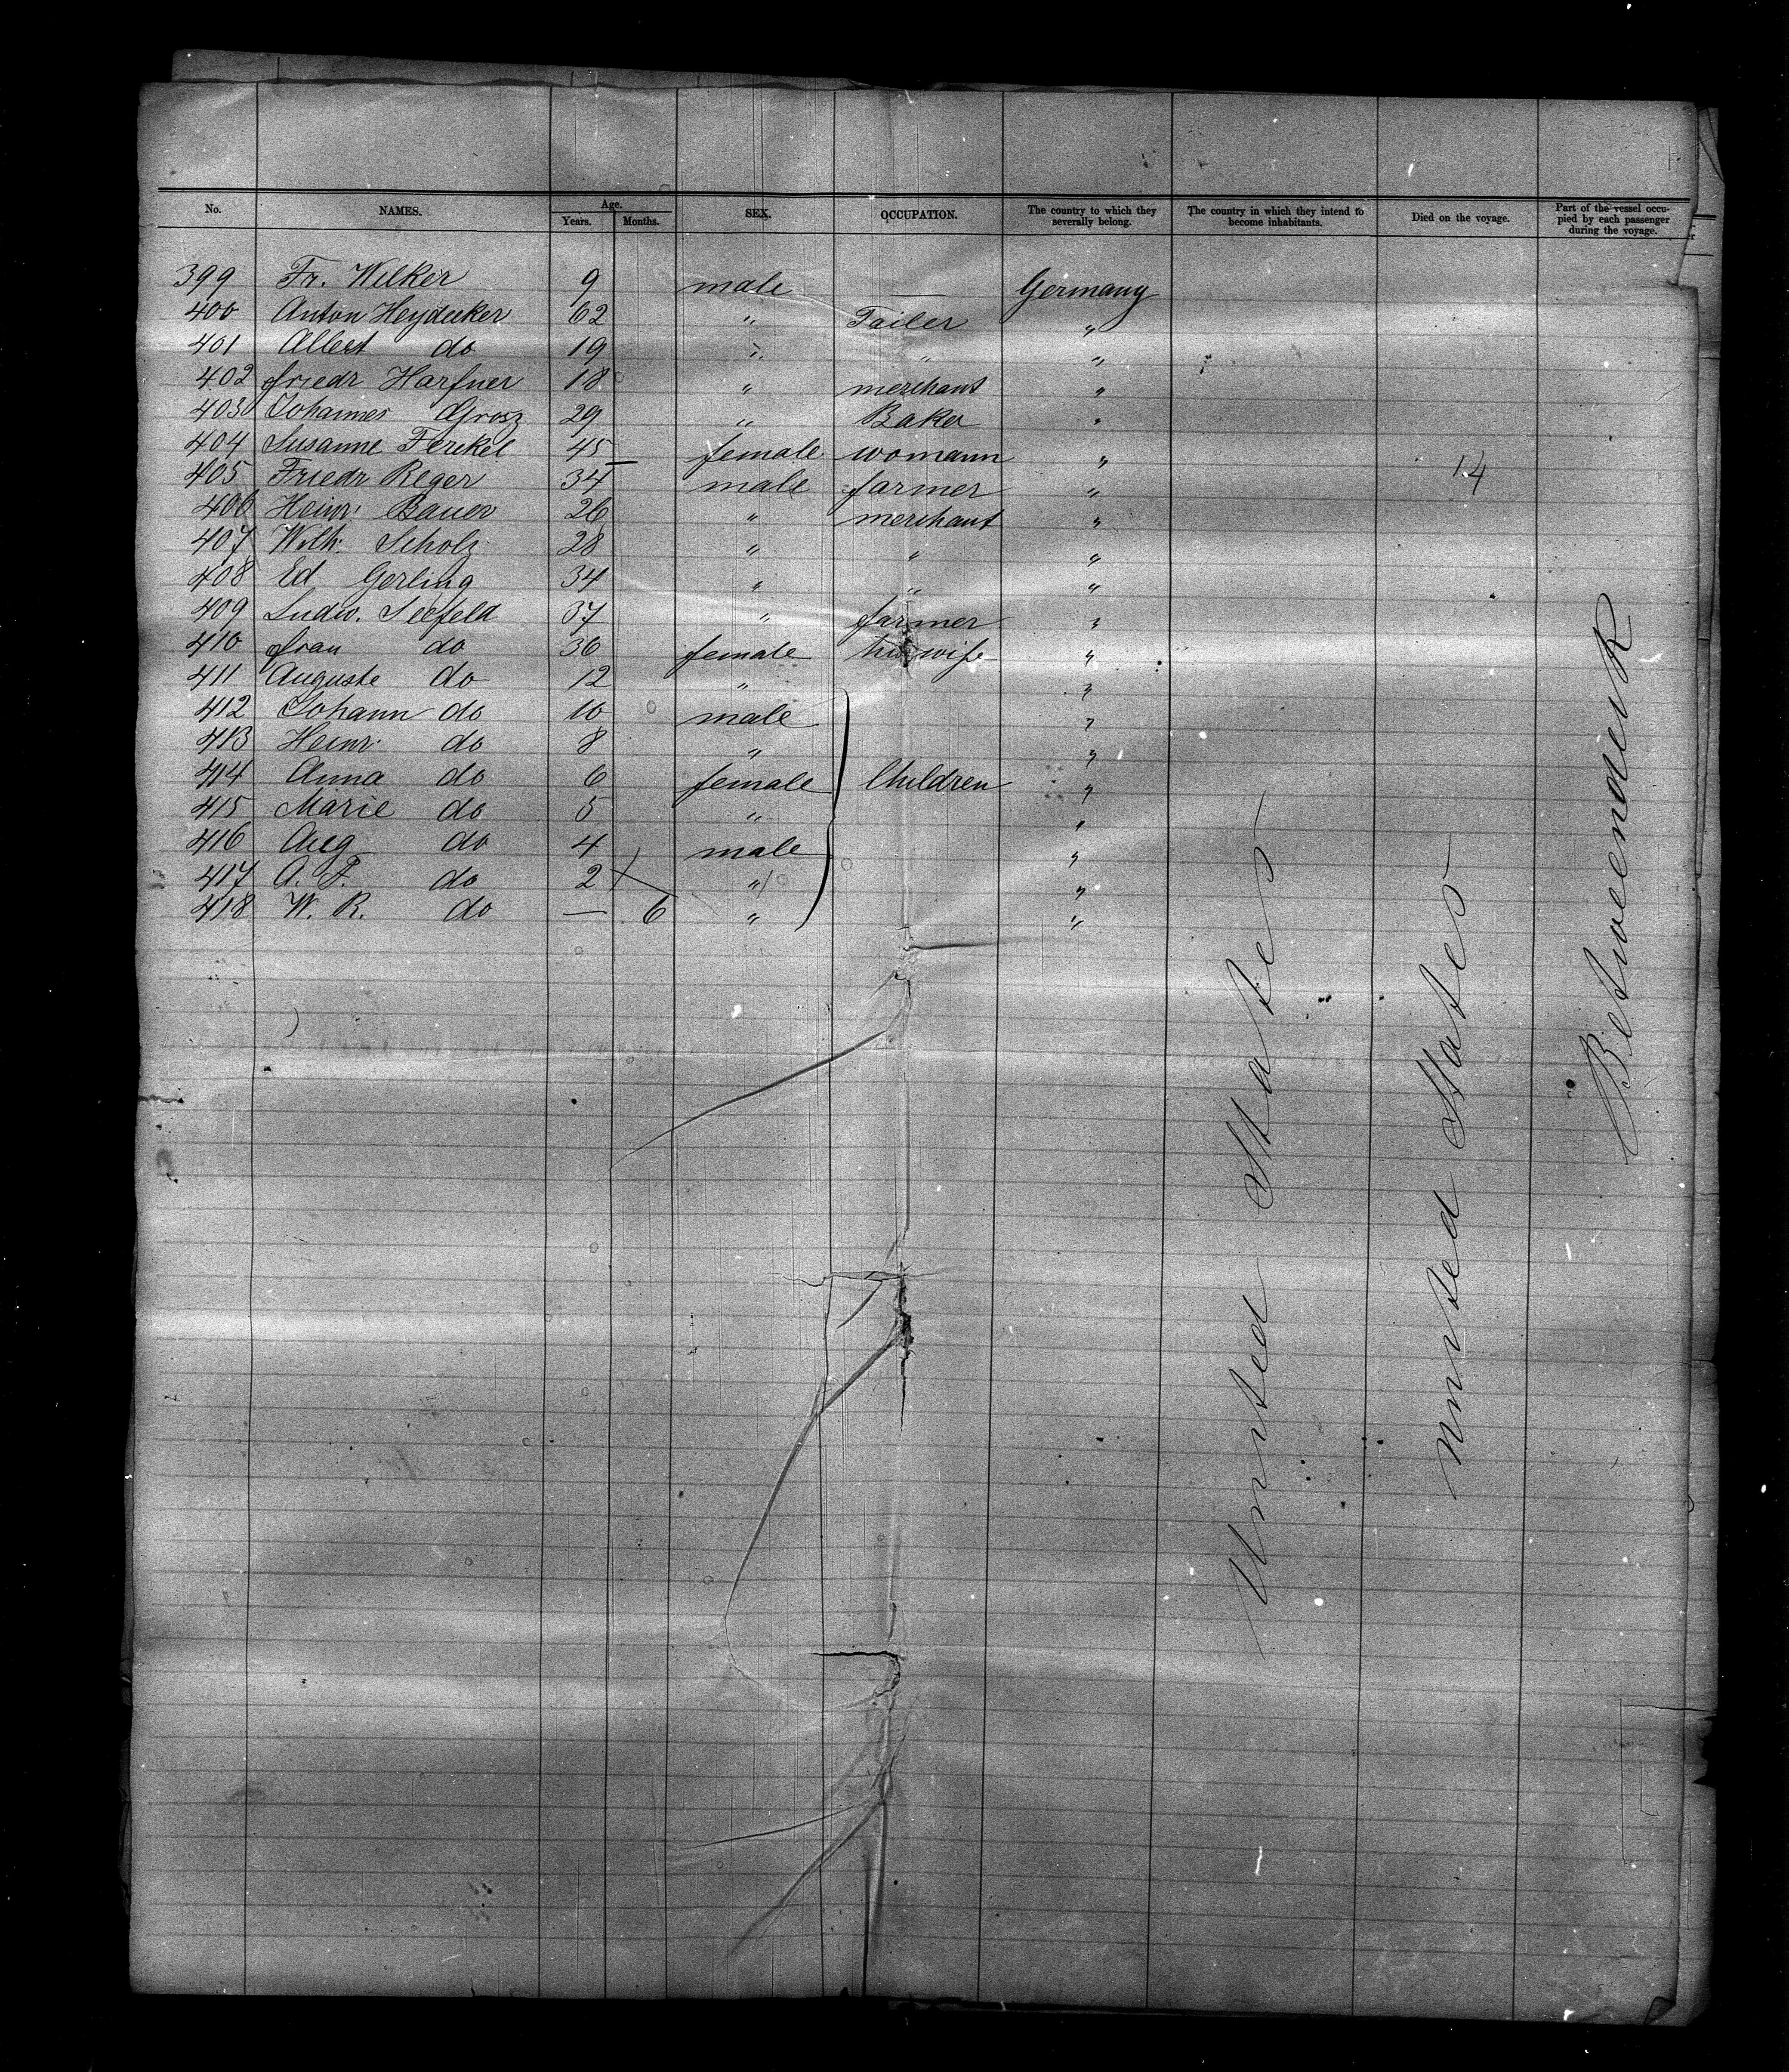 No. NAMES. Age. Years. Months. SEX. OCCUPATION. The country to which they severally belong. The country in which they intend to become inhabitants. Died on the voyage. Part of the vessel occupied by each passenger during the voyage.
399 Fr. Wilker 9 male — Germany
400 Anton Heydecker 62 " Tailer "
401 Albert do 19 " " "
402 Friedr Harfner 18 " merchant "
403 Johannes Grosz 29 " Baker "
404 Susanne Ferckel 45 female womann "
405 Friedr Reger 34 male farmer " 14
406 Heinr. Bauer 26 " merchant "
407 Wilh. Scholz 28 " " "
408 Ed Gerling 34 " " "
409 Ludw. Seefeld 37 " farmer "
410 Frau do 36 female his wife "
411 Auguste do 12 " "
412 Johann do 10 male "
413 Heinr do 8 " "
414 Anna do 6 female Children "
415 Marie do 5 " "
416 Aug do 4 male "
417 A. F. do 2 " "
418 W. R. do — 6 " "
United States
United States
Betweendeck